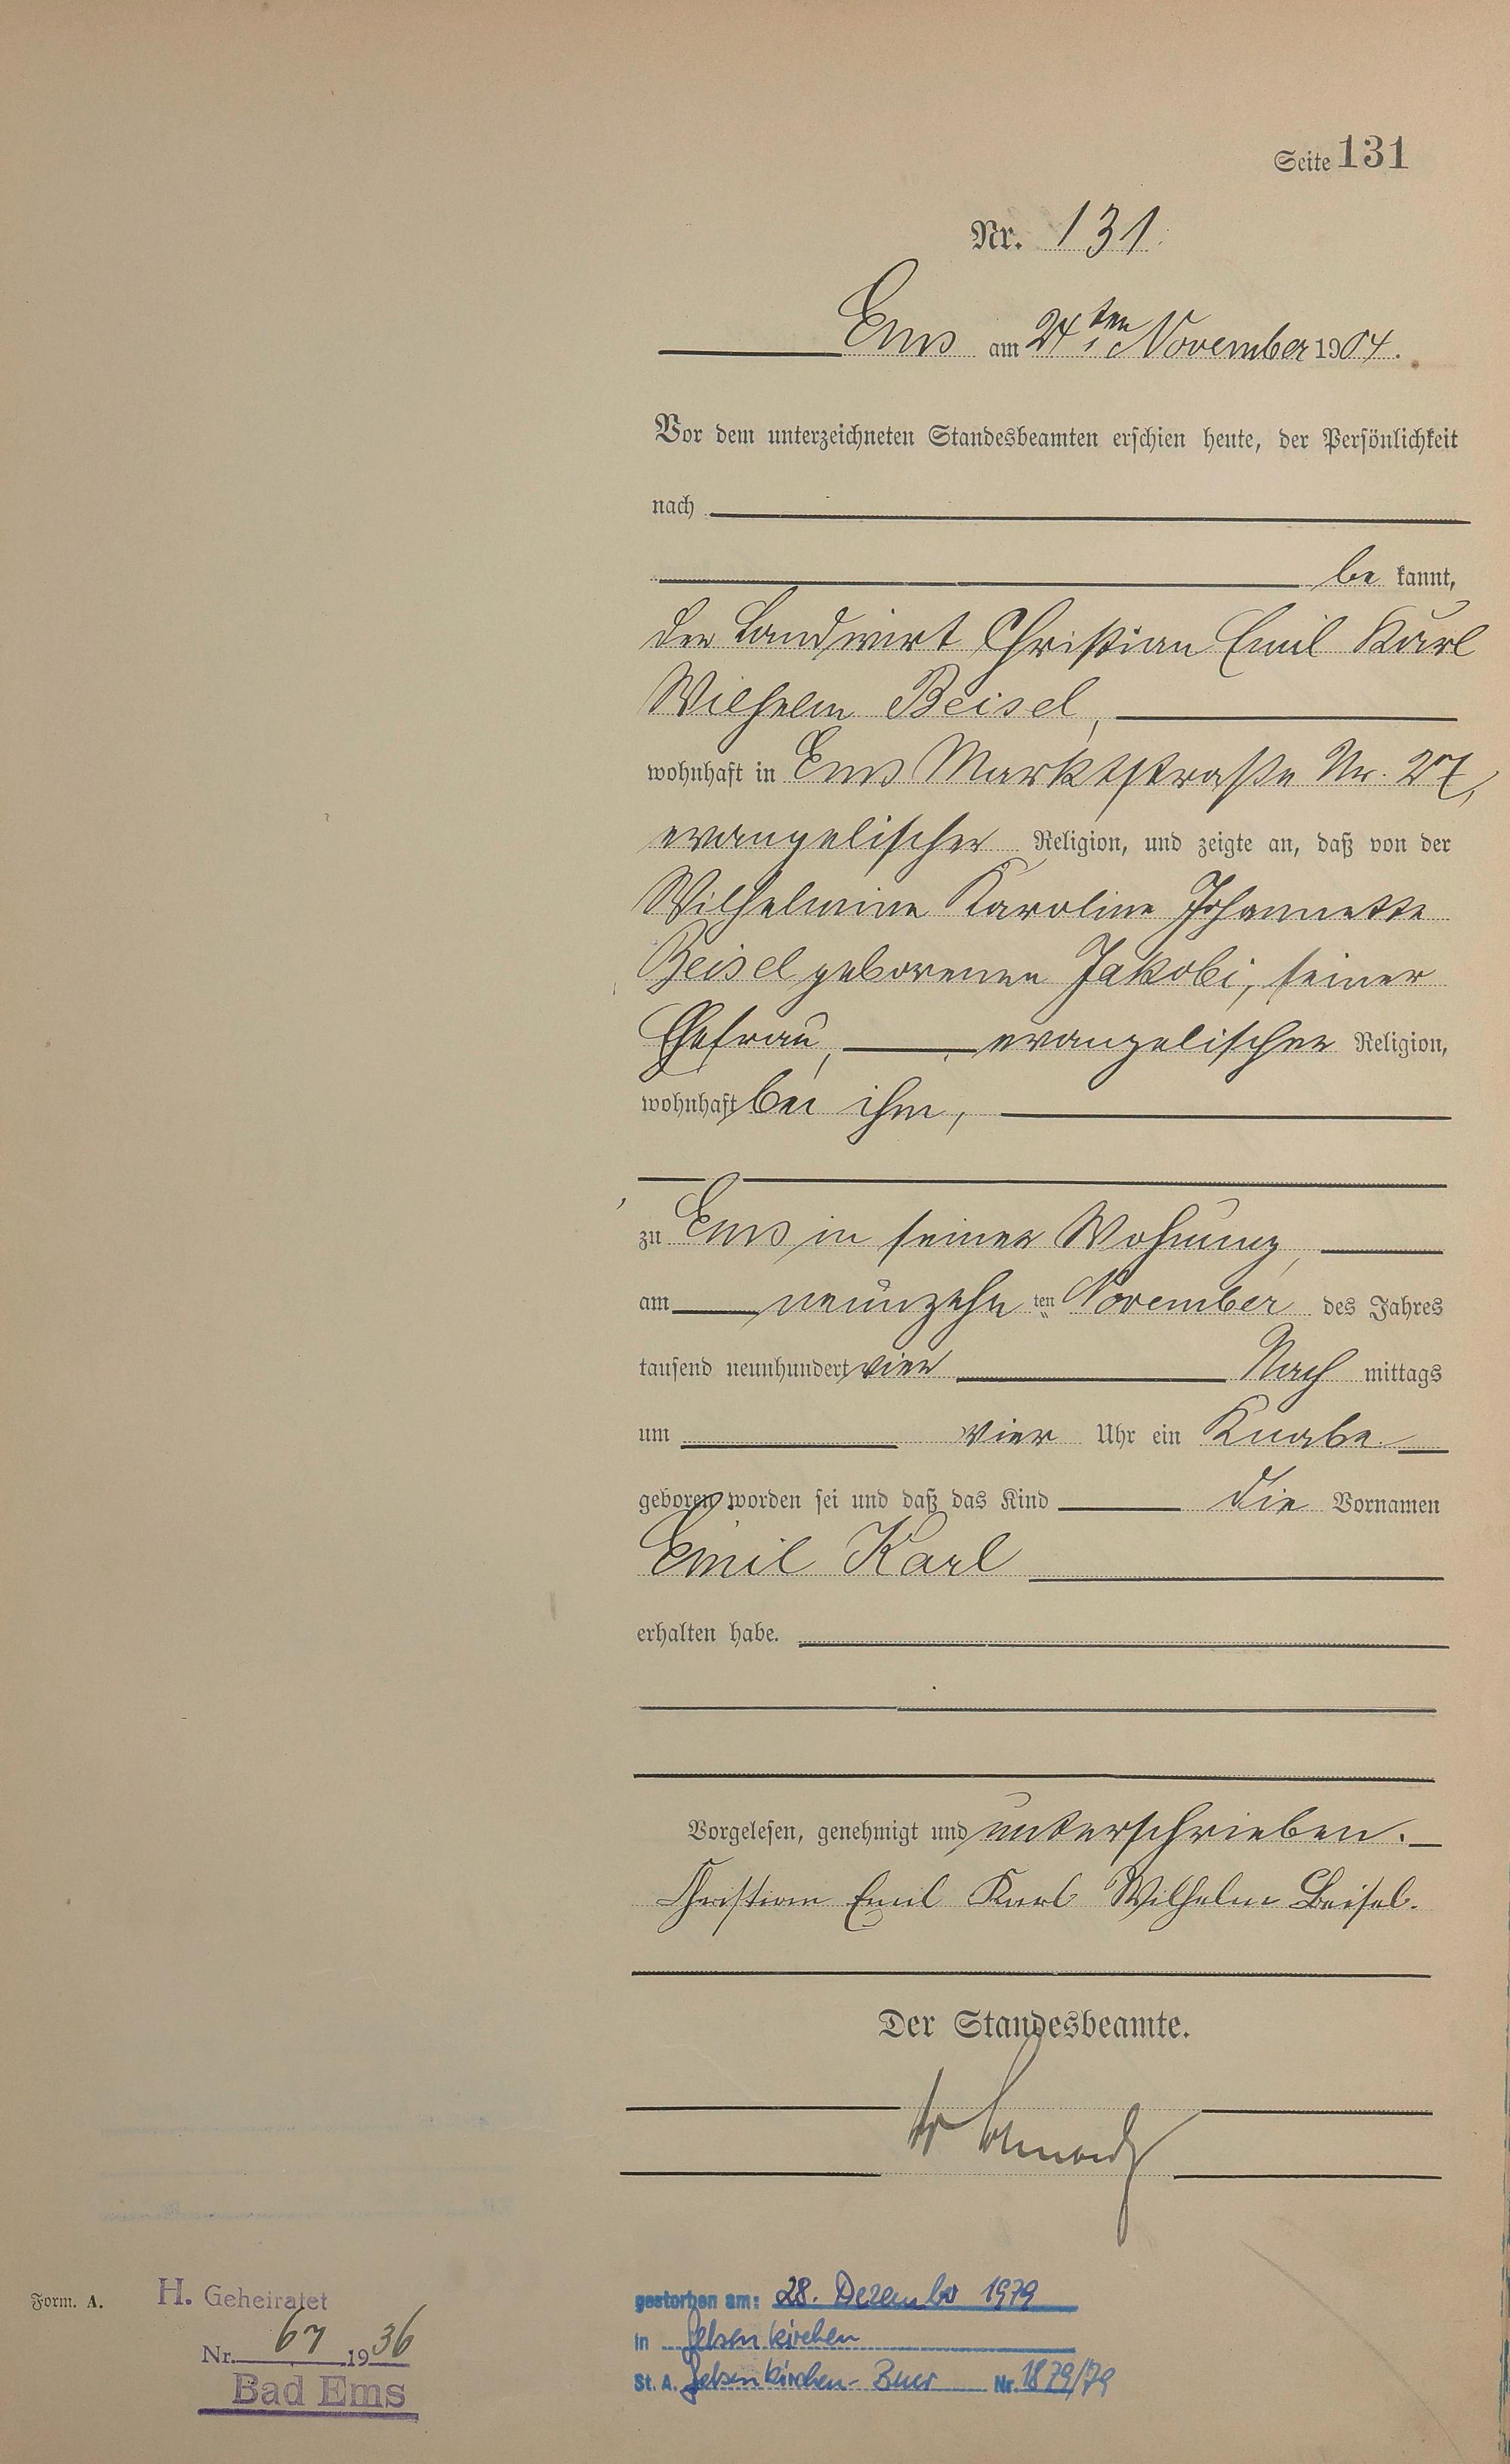 Seite 131
Nr. 131.
Ems am 24ten November 1904.
Vor dem unterzeichneten Standesbeamten erschien heute, der Persönlichkeit
nach
be kannt,
der Landwirt Christian Emil Karl
Wilhelm Beisel,
wohnhaft in Ems Marktstraße Nr. 27,
evangelischer Religion, und zeigte an, daß von der
Wilhelmine Karoline Johannette
Beisel geborenen Jakobi, seiner
Ehefrau, evangelischer Religion,
wohnhaft bei ihm,
zu Ems in seiner Wohnung,
am neunzehn ten November des Jahres
tausend neunhundert vier Nach mittags
um vier Uhr ein Knabe
geboren worden sei und daß das Kind die Vornamen
Emil Karl
erhalten habe.
Vorgelesen, genehmigt und unterschrieben.
Christian Emil Karl Wilhelm Beisel.
Der Standesbeamte.
Form. A.
H. Geheiratet
Nr. 67 1936
Bad Ems
gestorben am: 28. Dezember 1979
in Gelsenkirchen
St. A. Gelsenkirchen-Buer Nr. 1879/79